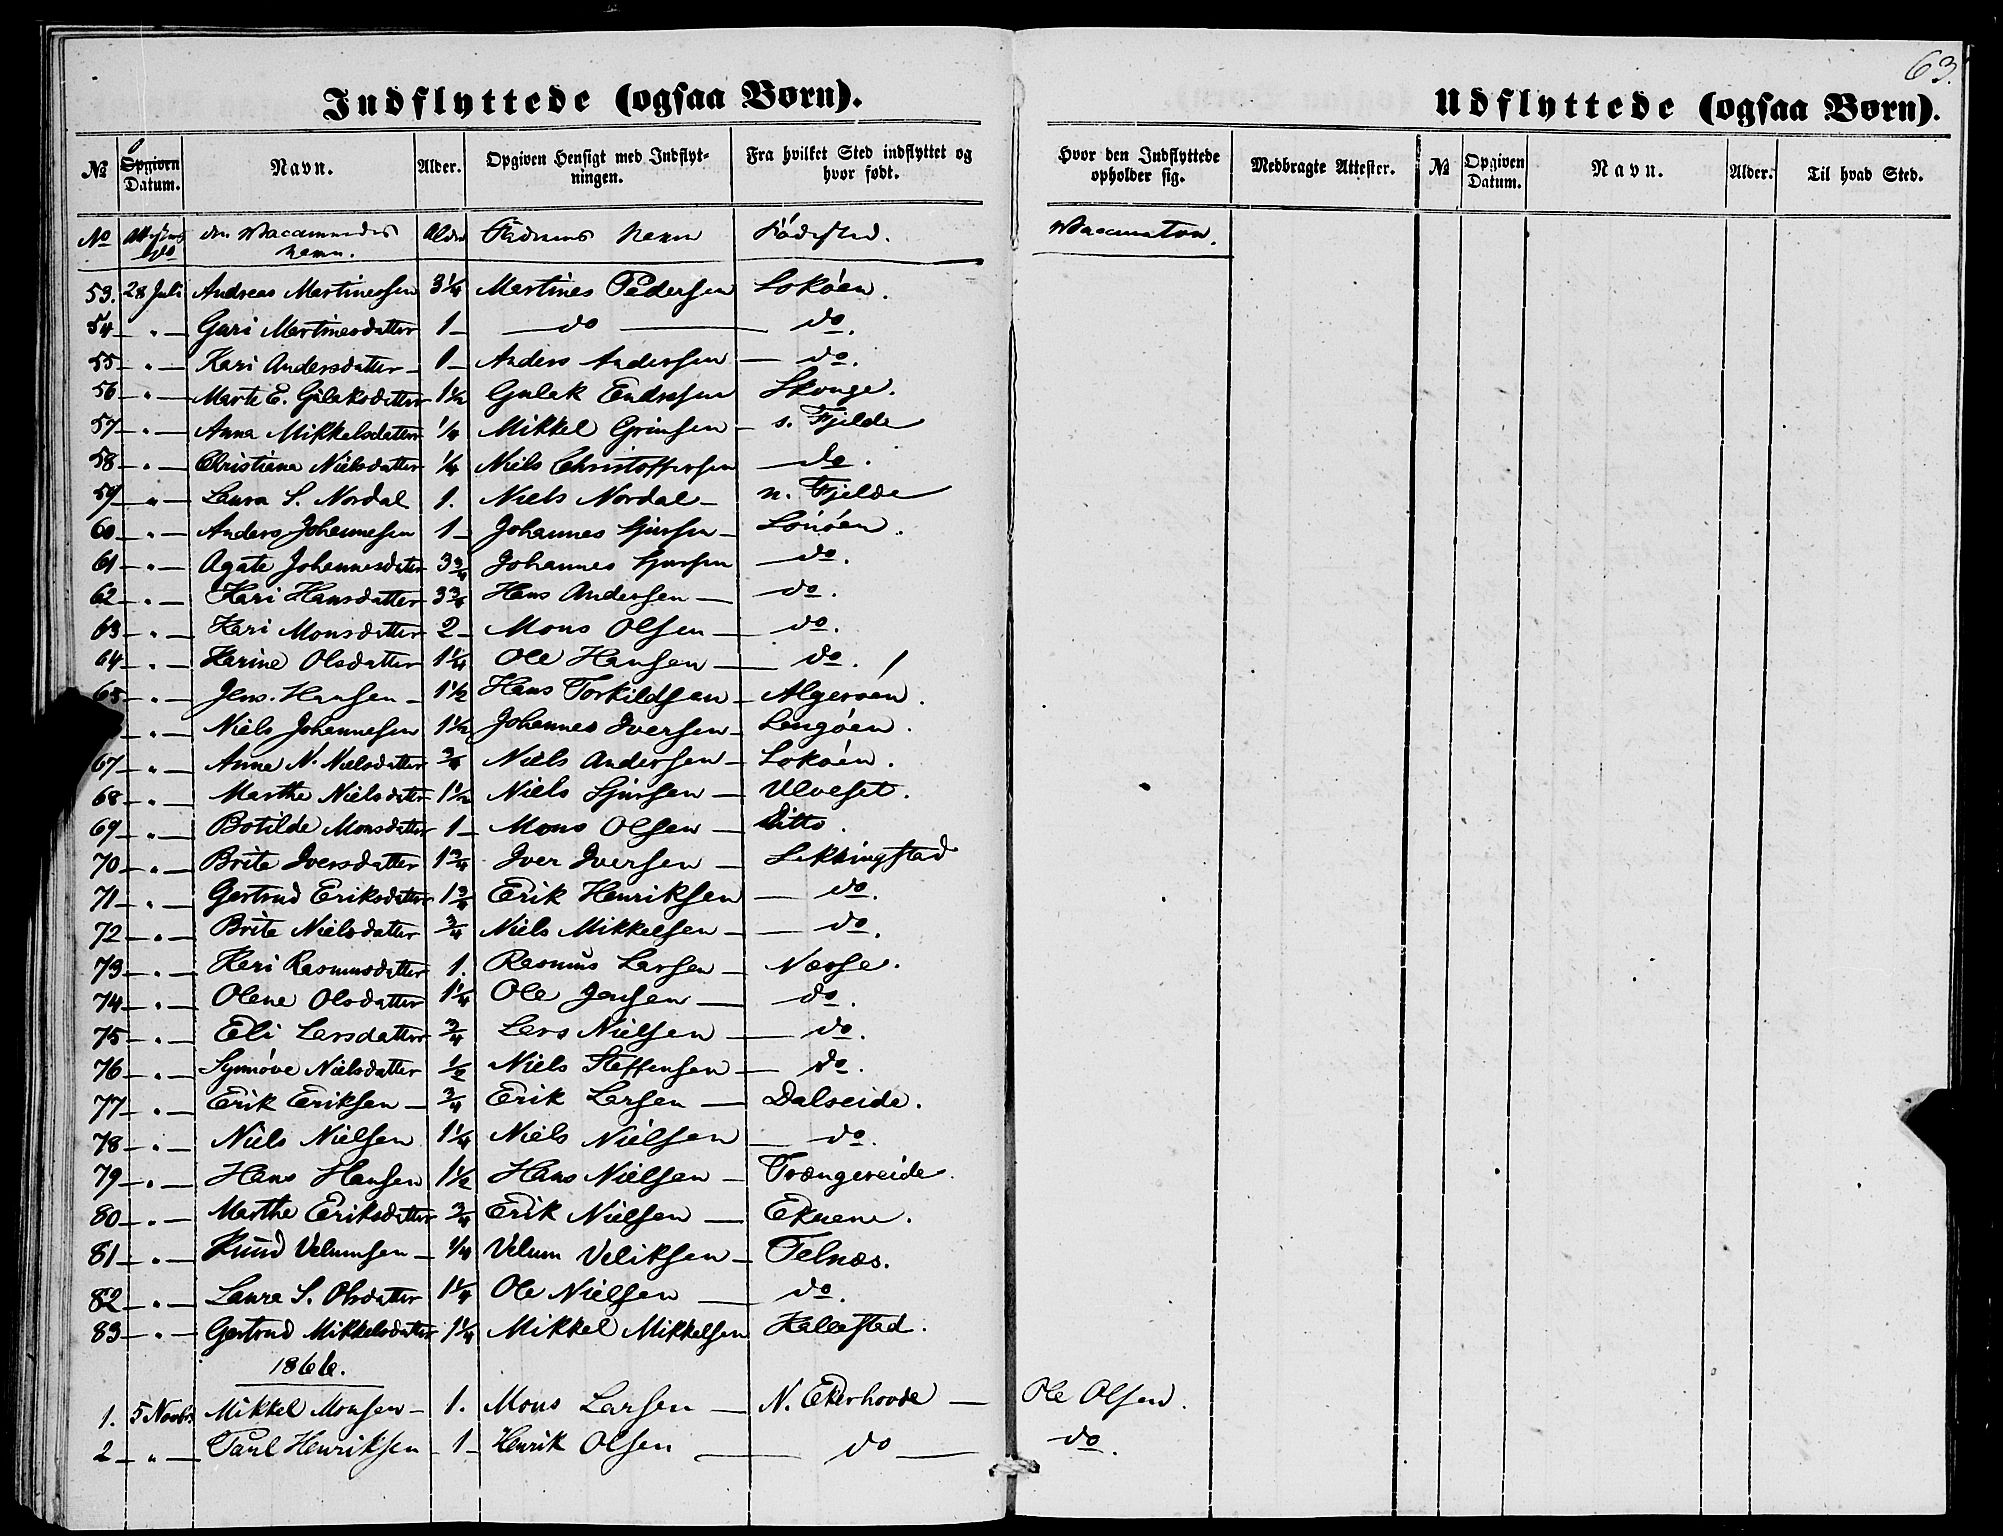 63.
Indflyttede (ogsaa Børn).
Udflyttede (ogsaa Børn).
No Opgiven Datum. Navn. Alder. Opgiven Hensigt med Indflytningen. Fra hvilket Sted indflyttet og hvor født. Hvor den Indflyttede opholder sig. Medbragte Attester. No Opgiven Datum. Navn. Alder. Til hvad Sted.
No den Vaccineredes Navn. Alder Fødested. Vaccinator.
53. 28 Juli Andreas Martinessen 3 1/4 Martines Pedersen Lokøen.
54 " Guri Martinesdatter 1 do do.
55 " Kari Andersdatter 1 Anders Andersen do.
56 " Marte E. Gulaksdatter 1 1/2 Gulak Endresen Skouge.
57 " Anna Mikkelsdatter 1/4 Mikkel Grimsen s. Fjelde
58 " Christiana Nielsdatter 1/4 Niels Christoffersen do.
59 " Laura S. Nordal 1. Niels Nordal n. Fjelde
60 " Anders Johannesen 1 Johannes Sjursen Lønøen.
61 " Agate Johannesdatter 3 3/4 Johannes Sjursen do.
62 " Kari Hansdatter 3 3/4 Hans Andersen do.
63 " Kari Monsdatter 2 Mons Olsen do.
64 " Karine Olsdatter 1 1/4 Ole Hansen do.
65 " Jens Hansen 1 1/2 Hans Torkildsen Algerøen.
" Niels Johannesen 1 1/2 Johannes Iversen Langøen.
67 " Anne N. Nielsdatter 3/4 Niels Andersen Lokøen.
68 " Marthe Nielsdatter 1 1/2 Niels Sjursen Ulveset.
69 " Botilde Monsdatter 1 Mons Olsen Ditto.
70 " Brite Iversdatter 1 3/4 Iver Iversen Lokkingstad
71 " Gertrud Eriksdatter 1 3/4 Erik Henriksen do.
72 " Brite Nielsdatter 3/4 Niels Mikkelsen do.
73 " Kari Rasmusdatter 1. Rasmus Larsen Næsse.
74 " Olene Olsdatter 1 1/4 Ole Jensen do.
75 " Eli Larsdatter 3/4 Lars Nielsen do.
76 " Synnøve Nielsdatter 1/2 Niels Steffensen do.
77 " Erik Eriksen 3/4 Erik Larsen Dalseide.
78 " Niels Nielsen 1 1/4 Niels Nielsen do.
79 " Hans Hansen 1 1/2 Hans Nielsen Trængereide.
80 " Marthe Eriksdatter 3/4 Erik Nielsen Ekrene.
81 " Knud Velumsen 1/4 Velum Veliksen Telnæs.
82 " Laura S. Olsdatter 1 1/4 Ole Nielsen do.
83 " Gertrud Mikkelsdatter 1 1/4 Mikkel Mikkelsen Hallestad.
1866.
1. 5 Novbr Mikkel Monsen 1. Mons Larsen N. Ekerhovde Ole Olsen.
2 " Paul Henriksen 1 Henrik Olsen do do.